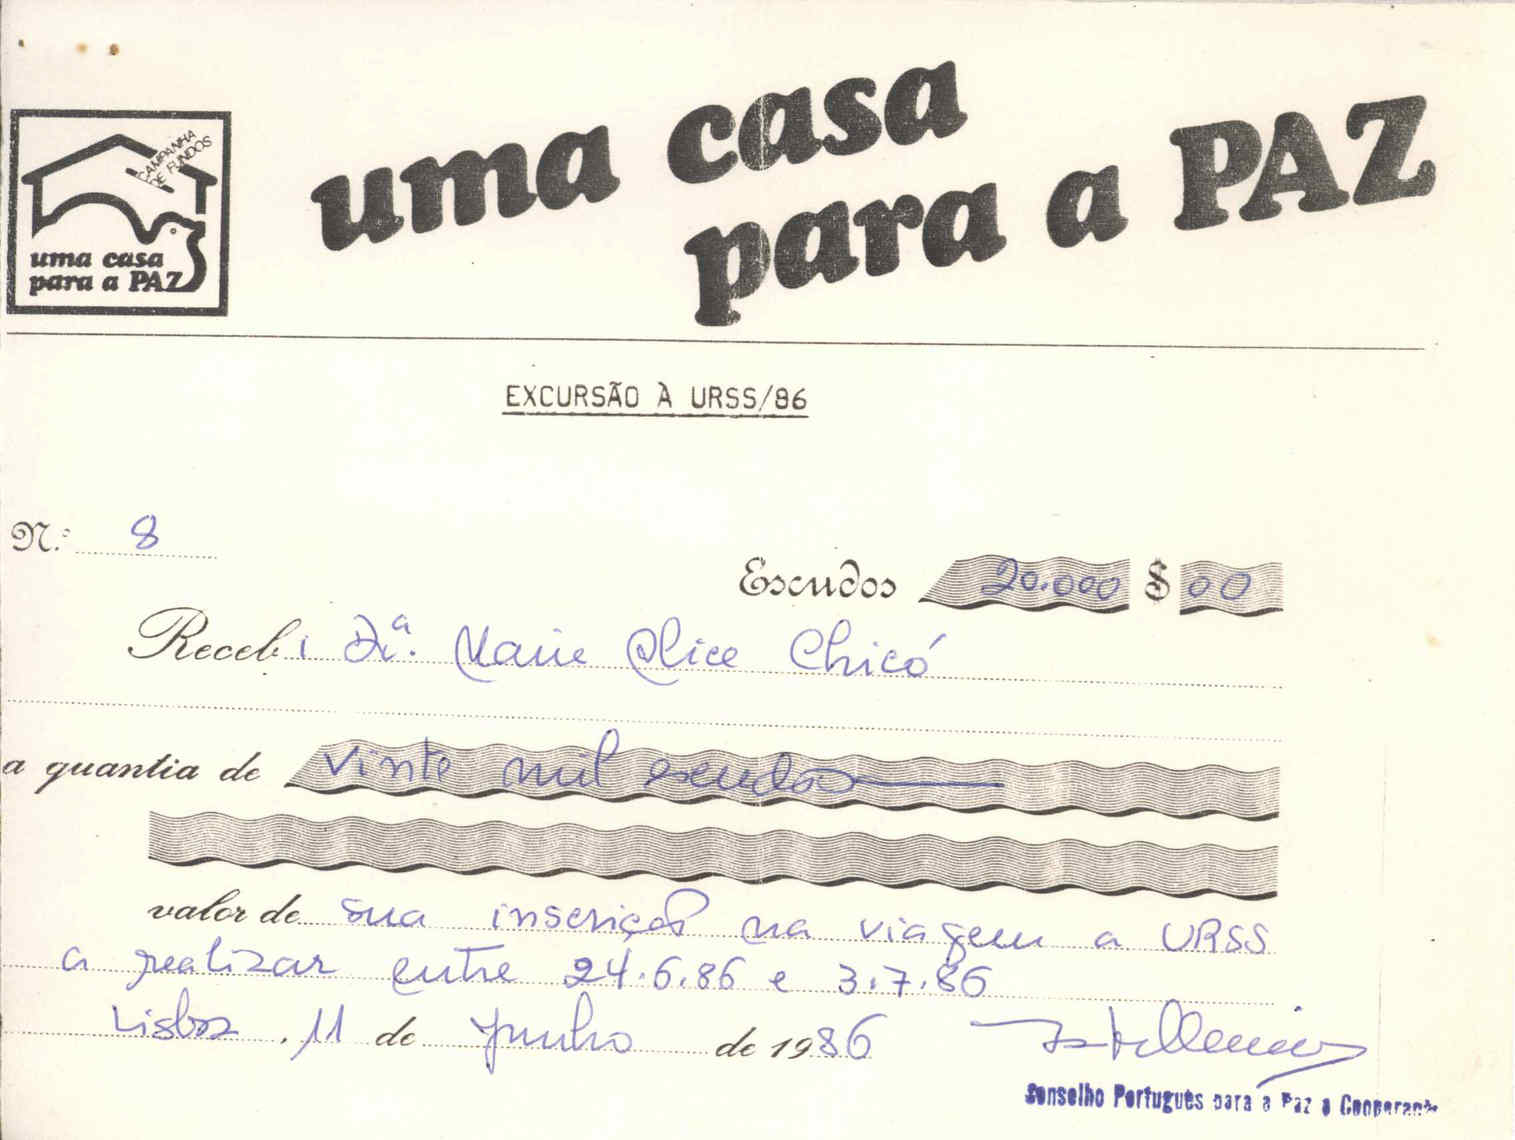 CAMPANHA
DE FUNDOS
uma casa
para a PAZ
uma casa
para a PAZ
EXCURSÃO À URSS/86
N.º 8
Escudos 20.000 $ 00
Recebi Drª. Maria Alice Chicó
a quantia de vinte mil escudos
valor de sua inscrição na viagem a URSS
a realizar entre 24.6.86 e 3.7.86
Lisboa, 11 de Junho de 1986
Conselho Português para a Paz e Cooperação